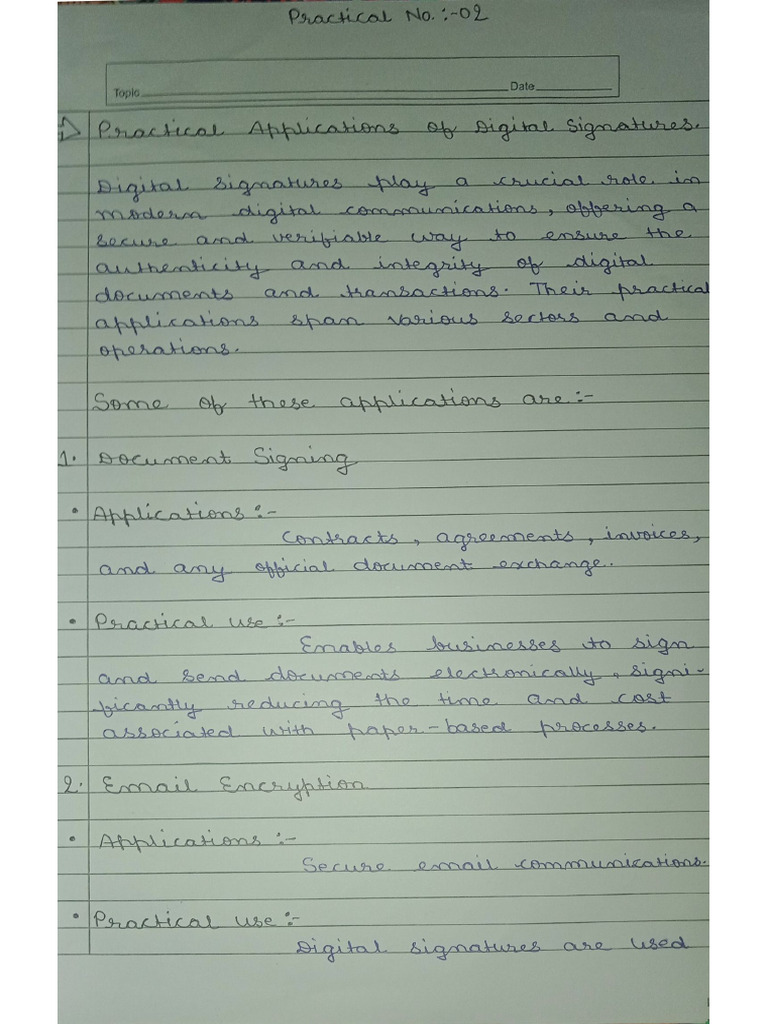 Practical No.:-02
Topic Date
Practical Applications of Digital Signatures.
Digital signatures play a crucial role in
modern digital communications, offering a
secure and verifiable way to ensure the
authenticity and integrity of digital
documents and transactions. Their practical
applications span various sectors and
operations.
Some of these applications are:-
1. Document Signing
• Applications:-
Contracts, agreements, invoices,
and any official document exchange.
• Practical use:-
Enables businesses to sign
and send documents electronically, signi-
ficantly reducing the time and cost
associated with paper-based processes.
2. Email Encryption
• Applications:-
Secure email communications.
• Practical use:-
Digital signatures are used